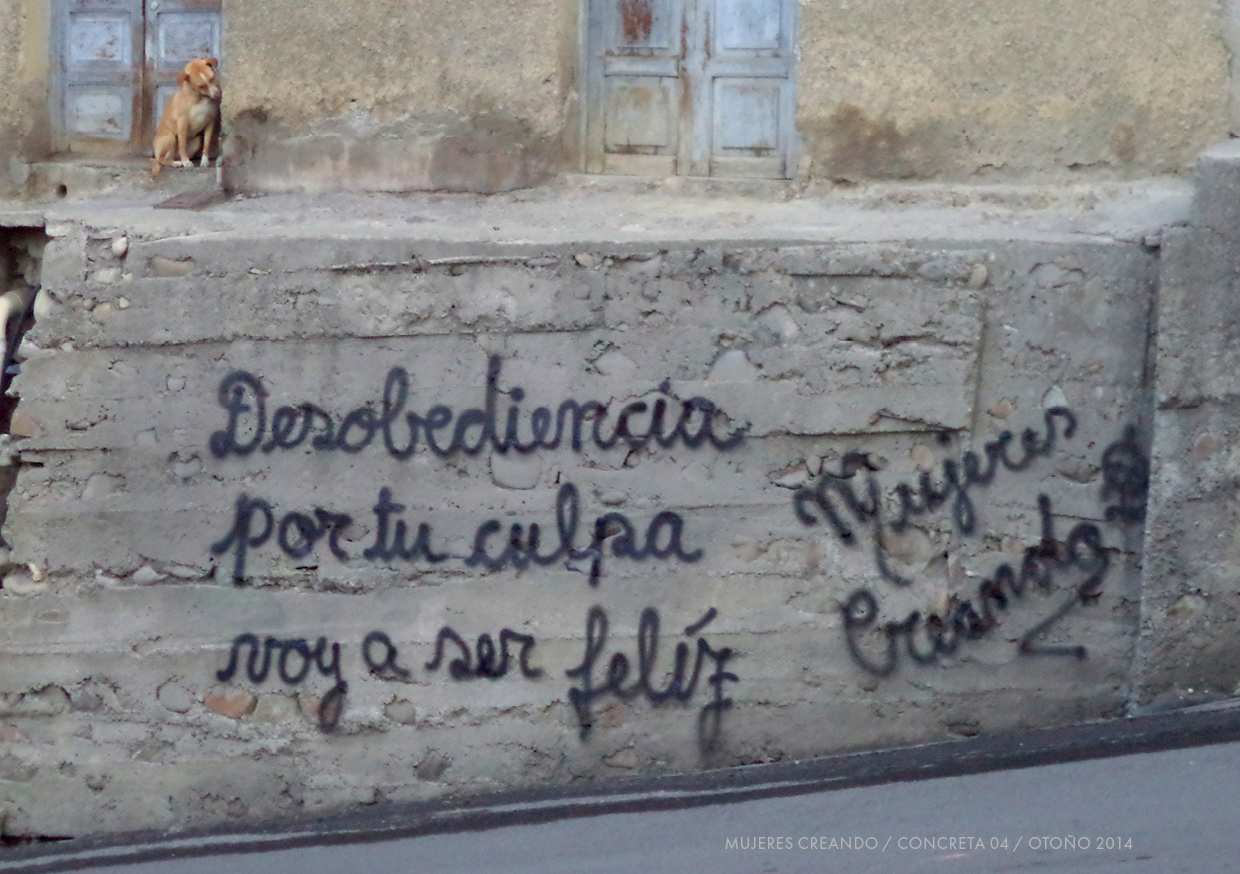 Desobediencia
por tu culpa
voy a ser felíz
Mujeres
Creando
MUJERES CREANDO / CONCRETA 04 / OTOÑO 2014